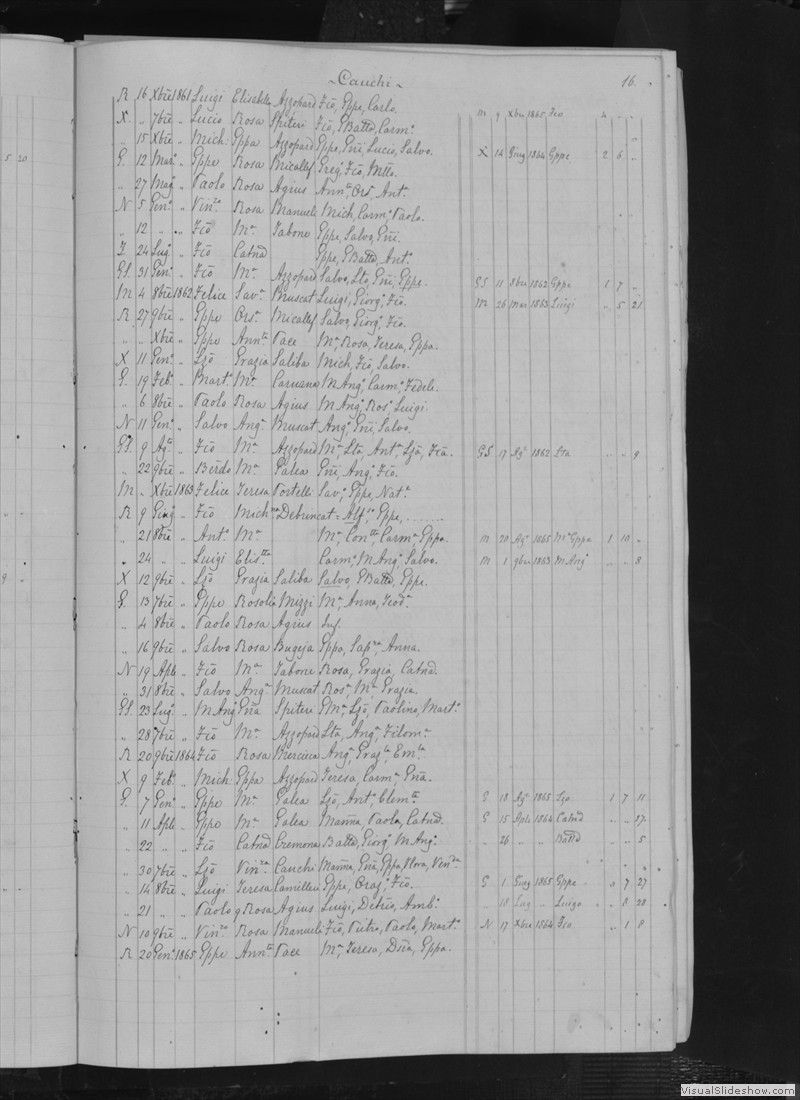 Cauchi 16.
R 16 Xbre 1861 Luigi Elisabetta Azzopard Fcō, Gppe, Carlo.
X. „ 7bre „ Lucio Rosa Spiteri Fcō, GBatta, Carmo. M 9 Xbre 1865 Fco 4 „ „
„ 15 Xbre „ Mich. Gppa Azzopard Gppe, Gnī, Lucio, Salvo.
G. 12 Maro „ Gppe Rosa Micallef Grego, Fcō, X 14 Giug 1864 Gppe 2 6 „
„ 27 Mago „ Paolo Rosa Agius Annta, Orso, Anto.
N 5 Geno „ Vinzo Rosa Manueli Mich, Carmo, Paolo.
„ 12 „ „ Fcō Ma Tabone Gppe, Salvo, Gnī.
Z 24 Lugo „ Fcō Catnā Gppe, GBatta, Anto
GS. 31 Geno „ Fcō Ma Azzopard Salvo, Gnī, Gppe. GS 11 8bre 1862 Gppa 1 7 „
M 4 8bre 1862 Felice Sava Buscat Luigi, Giorgo, Fcō. M 26 Mar 1863 Luigi „ 5 21
R 27 9bre „ Gppe Orsa Micallef Salvo, Giorgo, Fcō.
„ „ Xbre „ Gppe Annta Pace Ma, Rosa, Teresa, Gppa.
X 11 Geno „ Grazia Saliba Mich, Fcō, Salvo.
G. 19 Febo „ Marto Ma Caruana MAngo, Carmo, Fedele.
„ 6 8bre „ Paolo Rosa Agius MAngo, Roso, Luigi.
N 11 Geno „ Salvo Anga Muscat Ango, Gnī, Salvo.
GS. 9 Agto „ Fcō Ma Azzopard Ma, Anta, Fcā. GS 17 Ago 1862 „ „ 9
„ 22 9bre „ Berdo Ma Galea Gnī, Ango, Fcō.
M „ Xbre 1863 Felice Teresa Portelli Savo, Gppe, Nata.
R 9 Giugo „ Fcō Michna Debruncat = Alfso, Gppe, .......
„ 21 8bre „ Anto Ma Ma, Contta, Carma, Gppa. M 20 Ago 1865 Ma Gppa 1 10 „
„ 24 „ „ Luigi Elistta Carmo, MAngo, Salvo. M 1 9bre 1863 MAngo „ „ 8
X 12 9bre „ Grazia Saliba Salvo, GBatta, Gppe.
G. 13 7bre „ Gppe Rosolia Mizzi Ma, Anna, Teoda.
„ 4 8bre „ Paolo Rosa Agius
„ 16 9bre „ Salvo Rosa Bugeja Gppa, Anna.
N 19 Aple „ Fcō Ma Tabone Rosa, Grazia, Catnā.
„ 31 8bre „ Salvo Anga Muscat Rosa, Ma, Grazia.
GS. 23 Lugo „ MAngo Gnā Spiteri GMa, Paolino, Marto.
„ 28 7bre „ Fcō Ma Azzopard Anga, Filoma.
R 20 9bre 1864 Fcō Rosa Mercieca Anga, Emla.
X 9 Febo „ Mich. Gppa Azzopard Teresa, Carma, Gnā.
G. 7 Geno „ Gppe Ma Galea Anto, Clemta G 18 Ago 1865 1 7 11
„ 11 Aple „ Gppe Ma Galea Mañna, Paola, Catnā. G 15 Aple 1864 Catnā „ „ 17
„ 22 „ „ Fcō Catnā Cremona Batta, Giorgo, MAngo. „ 26 „ „ Batta „ „ 5
„ 30 7bre „ Vinza Cauchi Mañna, Gnā, Gppa
„ 14 8bre „ Luigi Teresa Camilleri Gppe, Grazo, Fcō. G 1 Giug 1865 Gppe „ 7 27
„ 21 „ „ Paolo Rosa Agius Luigi, Ambo. „ 18 Lug „ Luigi „ 8 20
N 10 9bre „ Vinzo Rosa Manueli Fcō, Pietro, Paolo, Marto. N 17 Xbre 1864 Fco „ 1 8
R 20 Geno 1865 Gppe Annta Pace Ma, Teresa, Gppa.
5 20
9
VisualSlideshow.com